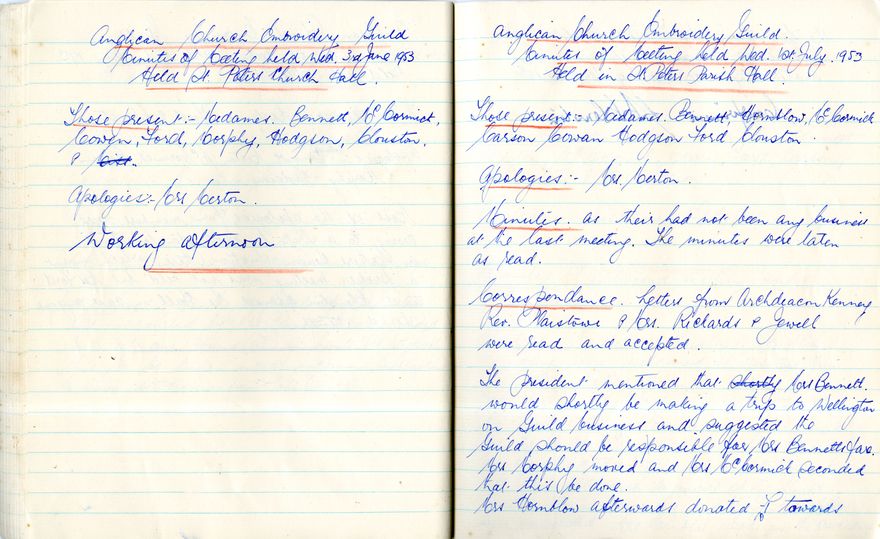 Anglican Church Embroidery Guild
Minutes of Meeting held Wed. 3rd June 1953
Held St Peters Church Hall.
Those present:- Mesdames. Bennett, McCormick,
Cowen, Ford, Morphy, Hodgson, Clouston,
&
Apologies:- Mrs Merton.
Working afternoon
Anglican Church Embroidery Guild.
Minutes of Meeting held Wed. 1st July. 1953
Held in St Peters Parish Hall.
Those present:- Mesdames. Bennett, Hornblow, McCormick
Carson Cowan Hodgson Ford Clouston.
Apologies:- Mrs Merton.
Minutes. as their had not been any business
at the last meeting. The minutes were taken
as read.
Correspondance. Letters from Archdeacon Kenney
Rev. Plaistowe & Mrs. Richards & Jewell
were read and accepted.
The president mentioned that shortly Mrs Bennett.
would shortly be making a trip to Wellington
on Guild business and suggested the
Guild should be responsible for Mrs Bennetts fare.
Mrs Morphy moved and Mrs McCormick seconded
that this be done.
Mrs Hornblow afterwards donated towards